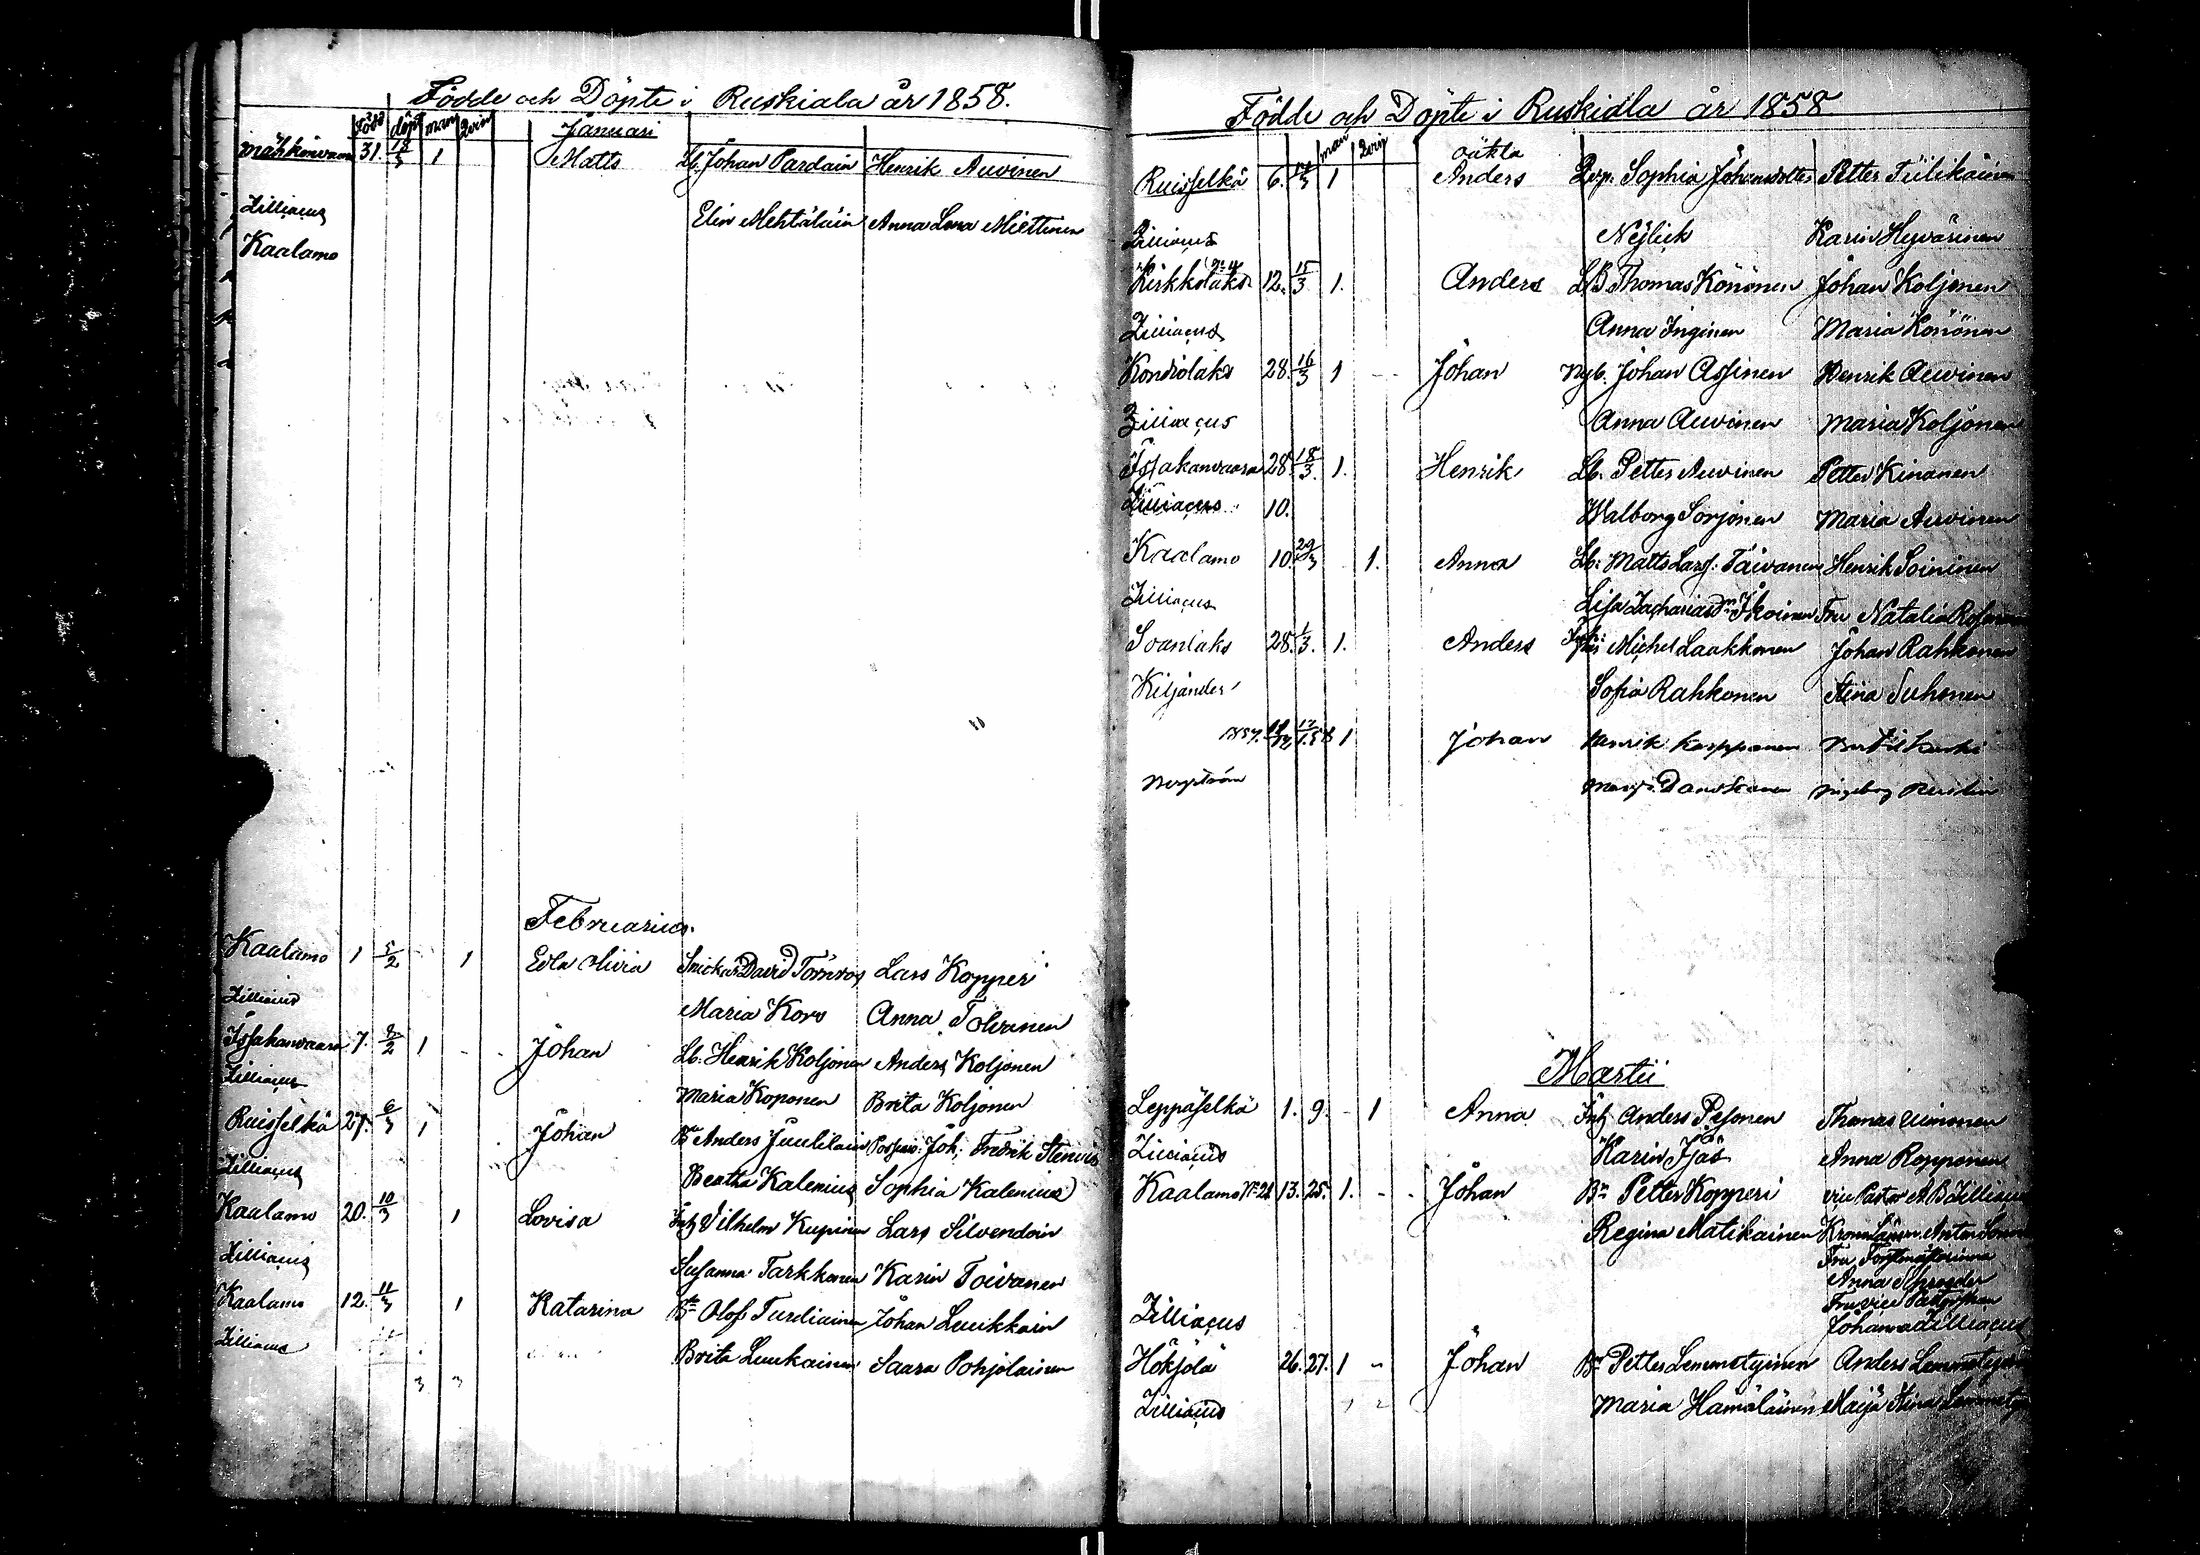 Födde och Döpte i Ruskiala år 1858.
Född döpt man Qvin Januari
Mähköinvaara 31. 15/3 1 Matts Lb. Johan Pardain Henrik Auvinen
Zilliacus Elin Mehtäläin Anna Lena Miettinen
Kaalamo
Februarius.
Kaalamo 1 5/2 1 Edla Olivia Snickar David Törnros Lars Kopperi
Zilliacus Maria Kors Anna Tolvanen
Issakanvaara 7. 8/2 1 Johan Lb. Henrik Koljonen Anders Koljonen
Zilliacus Maria Koponen Brita Koljonen
Ruisselkä 27. 6/3 1 Johan Bn Anders Juulilain Joh. Fredrik Stenius
Zilliacus Beatha Kalenius Sophia Kalenius
Kaalamo 20. 10/3 1 Lovisa Inh Vilhelm Kupinen Lars Silvendoin
Zilliacus Susanna Tarkkonen Karin Toivanen
Kaalamo 12. 11/3 1 Katarina Bn Olof Turdiainen Johan Luukkain
Zilliacus Brita Luukainen Saara Pohjolainen
3 3
Födde och Döpte i Ruskiala år 1858.
man Qvin oäkta
Ruisselkä 6. 14/3 1 Anders Qvp. Sophia Johansdotter Petter Tiilikainen
Zilliacus Neÿlick Karin Hyvärinen
Kirkkolaks 12. 15/3 1. Anders LB Thomas Könönen Johan Koljonen
Zilliacus Anna Inginen Maria Könönen
Kondiolaks 28. 16/3 1 Johan Nyb. Johan Assinen Henrik Auvinen
Zilliacus Anna Auvinen Maria Koljonen
Issakanvaara 28. 18/3. 1. Henrik Lb. Petter Auvinen Petter Kinanen
Zilliacus 10. Walborg Sorjonen Maria Auvinen
Kaalamo 10. 29/3 1. Anna Lb: Matts Lars: Taivanen Henrik Soininen
Zilliacus Lisa Zachariasdr Ikoinen Fru Natalia
Soanlaks 28. 1/3. 1. Anders Michel Laakkonen Johan Rahkonen
Kiljander Sofia Rahkonen Stina Suhonen
1857. 1 Johan Henrik Karppanen
Bergström Danskanen Ingeborg
Martii
Leppäselkä 1. 9. 1 Anna Inh Anders Pesonen Thomas Uimonen
Zilliacus Karin Ijäs Anna Ropponen
Kaalamo No 21 13. 25. 1. Johan Bn Petter Kopperi vice Pastor A B Zilliacus
Regina Matikainen Kronolänsm Anton
Fru Forstmästarinna
Anna Schroeder
Fru vice Pastorskan
Zilliacus Johanna Zilliacus
Hökjölä 26. 27. 1 Johan Bn Petter Lemmetyinen Anders Lemmetyinen
Zilliacus Maria Hämäläinen Maija Stina